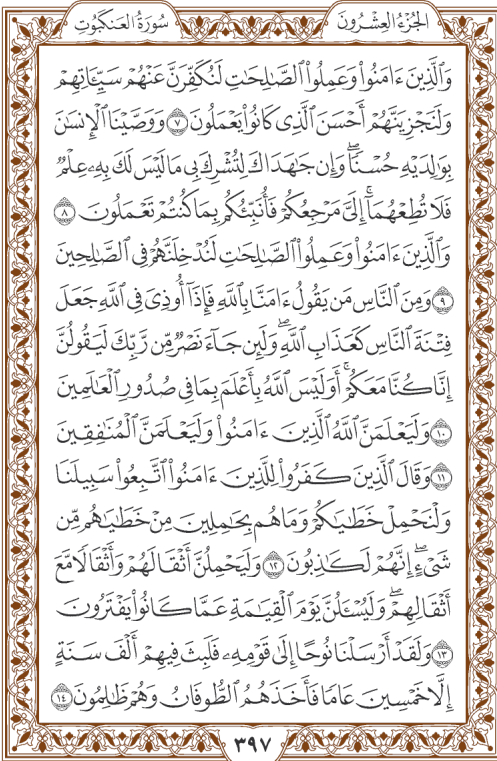 الجُزْءُ العِشْرُونَ
سُورَةُ العَنكَبُوتِ
وَٱلَّذِينَ ءَامَنُوا۟ وَعَمِلُوا۟ ٱلصَّـٰلِحَـٰتِ لَنُكَفِّرَنَّ عَنْهُمْ سَيِّـَٔاتِهِمْ
وَلَنَجْزِيَنَّهُمْ أَحْسَنَ ٱلَّذِى كَانُوا۟ يَعْمَلُونَ ٧ وَوَصَّيْنَا ٱلْإِنسَـٰنَ
بِوَٰلِدَيْهِ حُسْنًا ۖ وَإِن جَـٰهَدَاكَ لِتُشْرِكَ بِى مَا لَيْسَ لَكَ بِهِۦ عِلْمٌ
فَلَا تُطِعْهُمَآ ۚ إِلَىَّ مَرْجِعُكُمْ فَأُنَبِّئُكُم بِمَا كُنتُمْ تَعْمَلُونَ ٨
وَٱلَّذِينَ ءَامَنُوا۟ وَعَمِلُوا۟ ٱلصَّـٰلِحَـٰتِ لَنُدْخِلَنَّهُمْ فِى ٱلصَّـٰلِحِينَ
٩ وَمِنَ ٱلنَّاسِ مَن يَقُولُ ءَامَنَّا بِٱللَّهِ فَإِذَآ أُوذِىَ فِى ٱللَّهِ جَعَلَ
فِتْنَةَ ٱلنَّاسِ كَعَذَابِ ٱللَّهِ ۖ وَلَئِن جَآءَ نَصْرٌ مِّن رَّبِّكَ لَيَقُولُنَّ
إِنَّا كُنَّا مَعَكُمْ ۚ أَوَلَيْسَ ٱللَّهُ بِأَعْلَمَ بِمَا فِى صُدُورِ ٱلْعَـٰلَمِينَ
١٠ وَلَيَعْلَمَنَّ ٱللَّهُ ٱلَّذِينَ ءَامَنُوا۟ وَلَيَعْلَمَنَّ ٱلْمُنَـٰفِقِينَ
١١ وَقَالَ ٱلَّذِينَ كَفَرُوا۟ لِلَّذِينَ ءَامَنُوا۟ ٱتَّبِعُوا۟ سَبِيلَنَا
وَلْنَحْمِلْ خَطَـٰيَـٰكُمْ وَمَا هُم بِحَـٰمِلِينَ مِنْ خَطَـٰيَـٰهُم مِّن
شَىْءٍ ۖ إِنَّهُمْ لَكَـٰذِبُونَ ١٢ وَلَيَحْمِلُنَّ أَثْقَالَهُمْ وَأَثْقَالًا مَّعَ
أَثْقَالِهِمْ ۖ وَلَيُسْـَٔلُنَّ يَوْمَ ٱلْقِيَـٰمَةِ عَمَّا كَانُوا۟ يَفْتَرُونَ
١٣ وَلَقَدْ أَرْسَلْنَا نُوحًا إِلَىٰ قَوْمِهِۦ فَلَبِثَ فِيهِمْ أَلْفَ سَنَةٍ
إِلَّا خَمْسِينَ عَامًا فَأَخَذَهُمُ ٱلطُّوفَانُ وَهُمْ ظَـٰلِمُونَ ١٤
٣٩٧